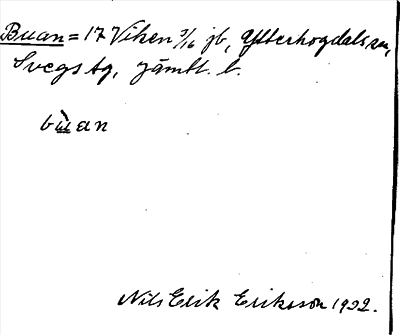 Buan = 17 Viken 3/16 jb, Ytterhogdals sn,
Svegs tg, jämtl. l.
bùan
Nils Erik Eriksson 1932.